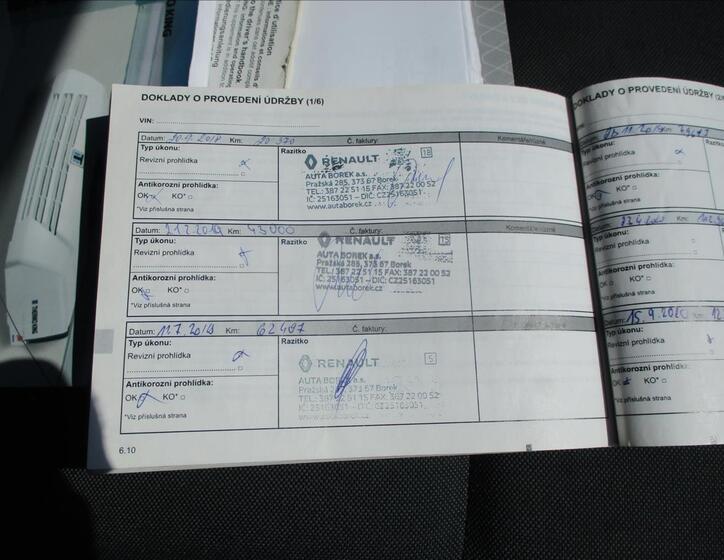 DOKLADY O PROVEDENÍ ÚDRŽBY (1/6)
VIN:
Datum: 20.9.2018 Km: 20 370 Č. faktury: Komentáře/různé
Typ úkonu: Razítko
Revizní prohlídka
Antikorozní prohlídka:
OK KO*
*Viz příslušná strana
RENAULT 18
AUTA BOREK a.s.
Pražská 285, 373 67 Borek
TEL.: 387 22 51 15 FAX: 387 22 00 52
IČ: 25163051 – DIČ: CZ25163051
www.autaborek.cz
Datum: 21.2.2019 Km: 43000 Č. faktury:
Typ úkonu: Razítko
Revizní prohlídka
Antikorozní prohlídka:
OK KO*
*Viz příslušná strana
RENAULT 15
AUTA BOREK a.s.
Pražská 285, 373 67 Borek
TEL.: 387 22 51 15 FAX: 387 22 00 52
IČ: 25163051 – DIČ: CZ25163051
www.autaborek.cz
Datum: 11.7.2019 Km: 62497 Č. faktury:
Typ úkonu: Razítko
Revizní prohlídka
Antikorozní prohlídka:
OK KO*
*Viz příslušná strana
RENAULT 5
AUTA BOREK a.s.
Pražská 285, 373 67 Borek
TEL.: 387 22 51 15 FAX: 387 22 00 52
IČ: 25163051 – DIČ: CZ25163051
www.autaborek.cz
6.10
DOKLADY O PROVEDENÍ ÚDRŽBY
Typ úkonu:
Revizní prohlídka
Antikorozní prohlídka:
OK KO*
*Viz příslušná strana
Typ úkonu:
Revizní prohlídka
Antikorozní prohlídka:
OK KO*
*Viz příslušná strana
Datum: 15.9.2020 Km:
Typ úkonu:
Revizní prohlídka
Antikorozní prohlídka:
OK KO*
*Viz příslušná strana